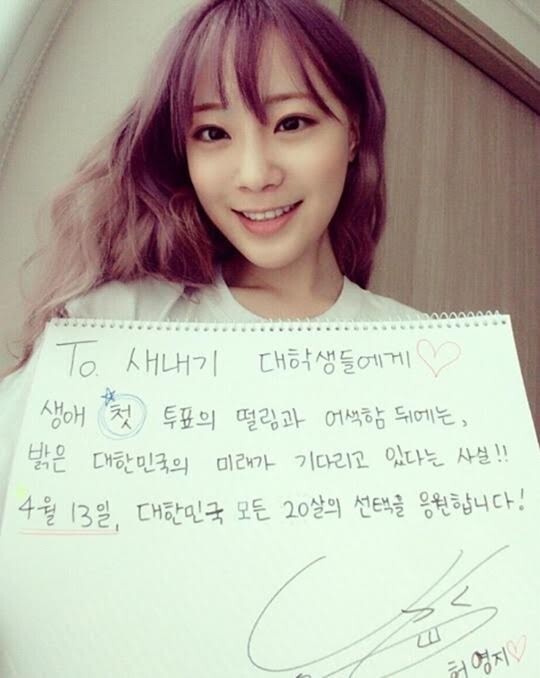 To. 새내기 대학생들에게♡
생애 첫 투표의 떨림과 어색함 뒤에는,
밝은 대한민국의 미래가 기다리고 있다는 사실!!
4월 13일, 대한민국 모든 20살의 선택을 응원합니다!
허영지♡